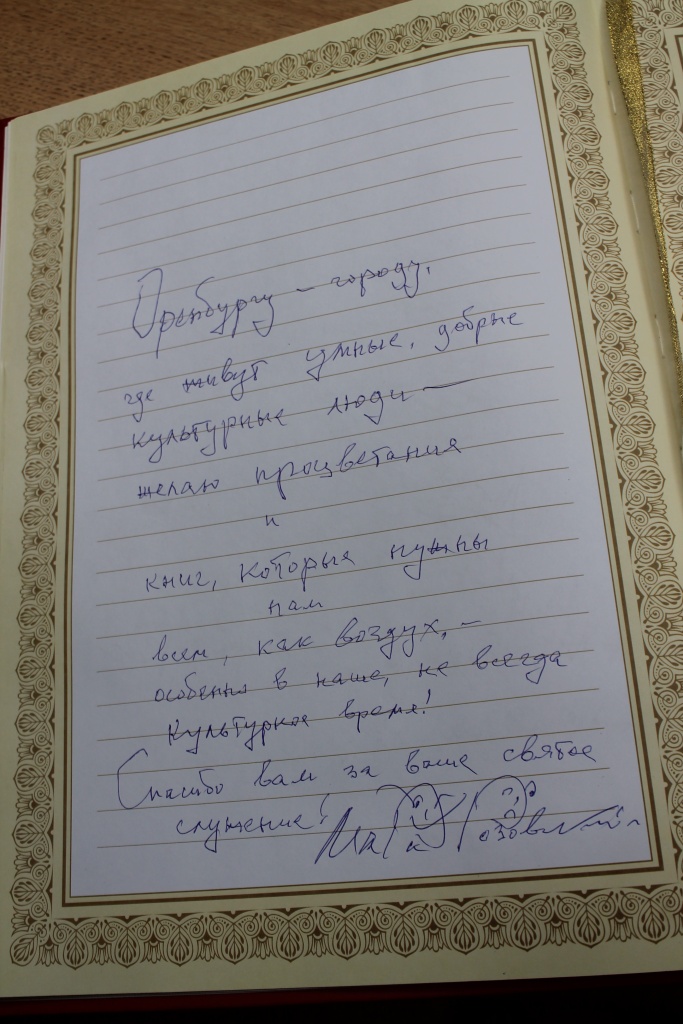 Оренбургу – городу,
где живут умные, добрые
культурные люди —
желаю процветания
и
книг, которые нужны
нам
всем, как воздух, –
особенно в наше, не всегда
культурное время!
Спасибо вам за ваше святое
служение!